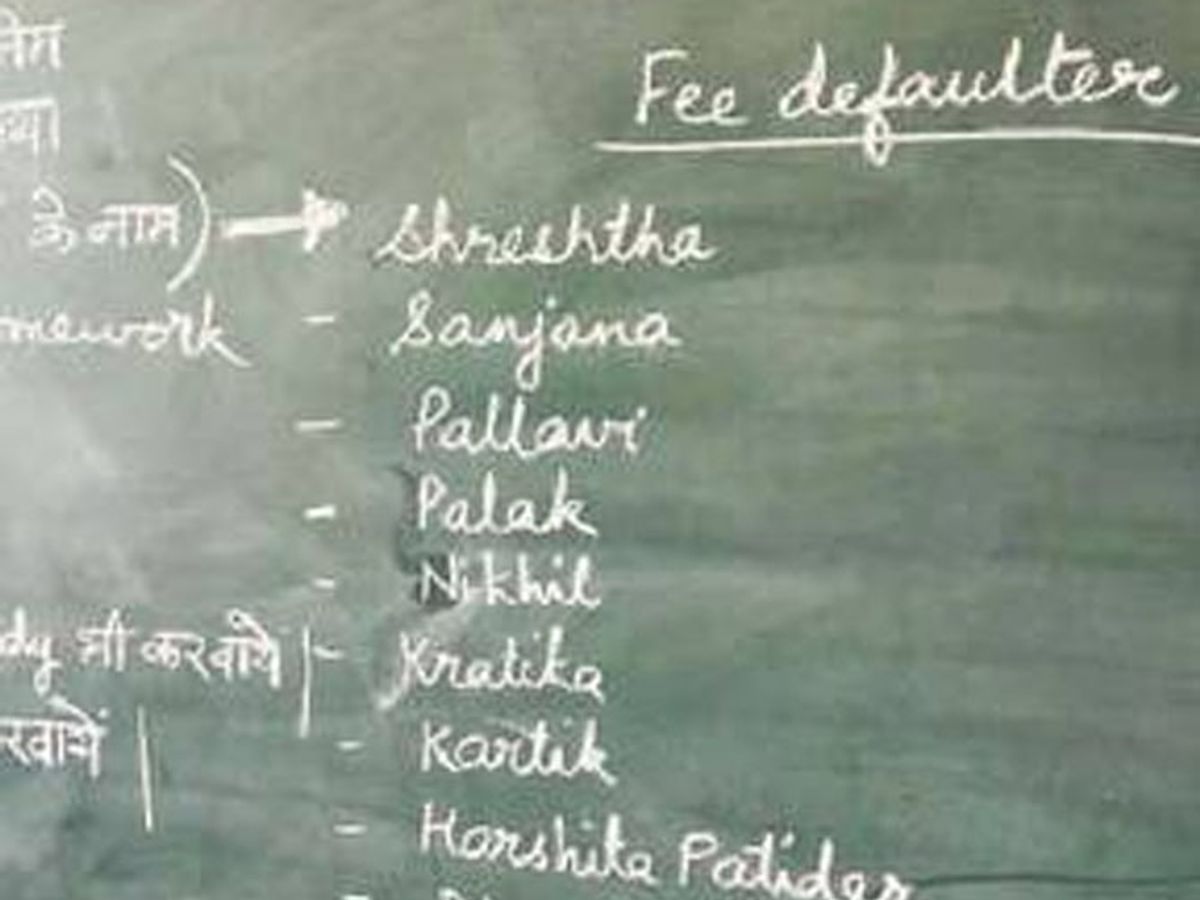 Fee defaulter
के नाम) → Shreshtha
mework - Sanjana
- Pallavi
- Palak
- Nikhil
dy भी करवाये | - Kratika
रवायें | - Kartik
- Harshita Patidar